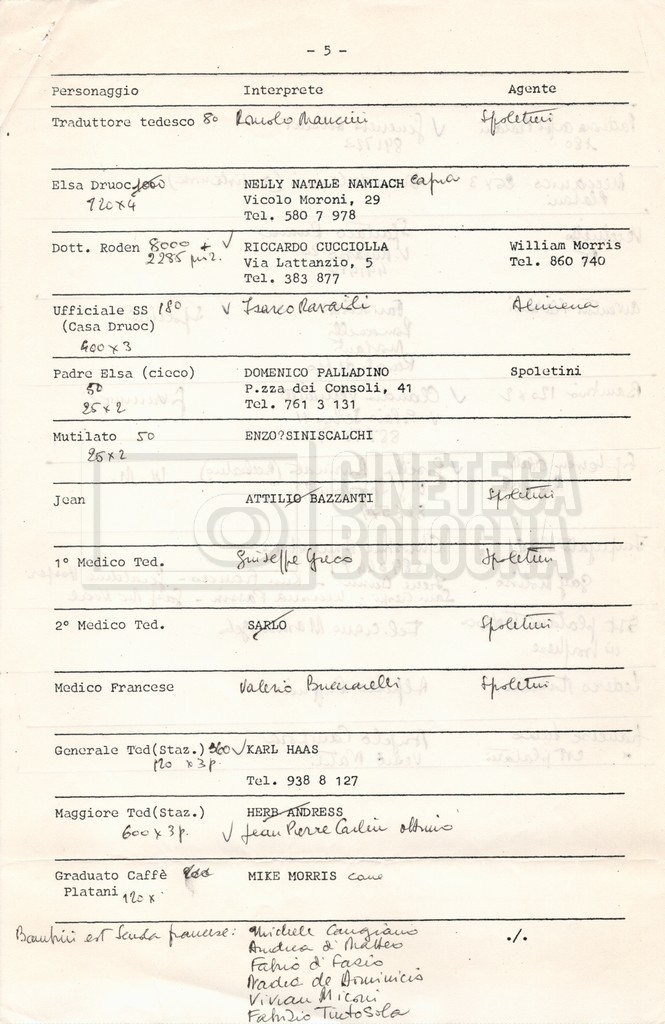 - 5 -
Personaggio Interprete Agente
Traduttore tedesco 80 Romolo Mancini Spoletini
Elsa Druoc
120x4
NELLY NATALE NAMIACH
Vicolo Moroni, 29
Tel. 580 7 978
Dott. Roden 8000 +
2285
✓ RICCARDO CUCCIOLLA
Via Lattanzio, 5
Tel. 383 877
William Morris
Tel. 860 740
Ufficiale SS 180
(Casa Druoc)
400 x 3
✓ Isarco Ravaioli
Almena
Padre Elsa (cieco)
50
25 x 2
DOMENICO PALLADINO
P.zza dei Consoli, 41
Tel. 761 3 131
Spoletini
Mutilato 50
25 x 2
ENZO?SINISCALCHI
Jean ATTILIO BAZZANTI Spoletini
1° Medico Ted. Giuseppe Greco Spoletini
2° Medico Ted. SARLO Spoletini
Medico Francese Valerio Spoletini
Generale Ted(Staz.)
120 x 3 p.
✓ KARL HAAS
Tel. 938 8 127
Maggiore Ted(Staz.)
600 x 3 p.
HERB ANDRESS
✓ Jean Pierre
Graduato Caffè
Platani 120 x
MIKE MORRIS
Bambini est Scuola francese: Michele Cangiano
Andrea di Matteo
Fabio d Fazio
Nadia de Dominicis
Vivian Miconi
Fabrizio TintoSola
./.
CINETECA
BOLOGNA